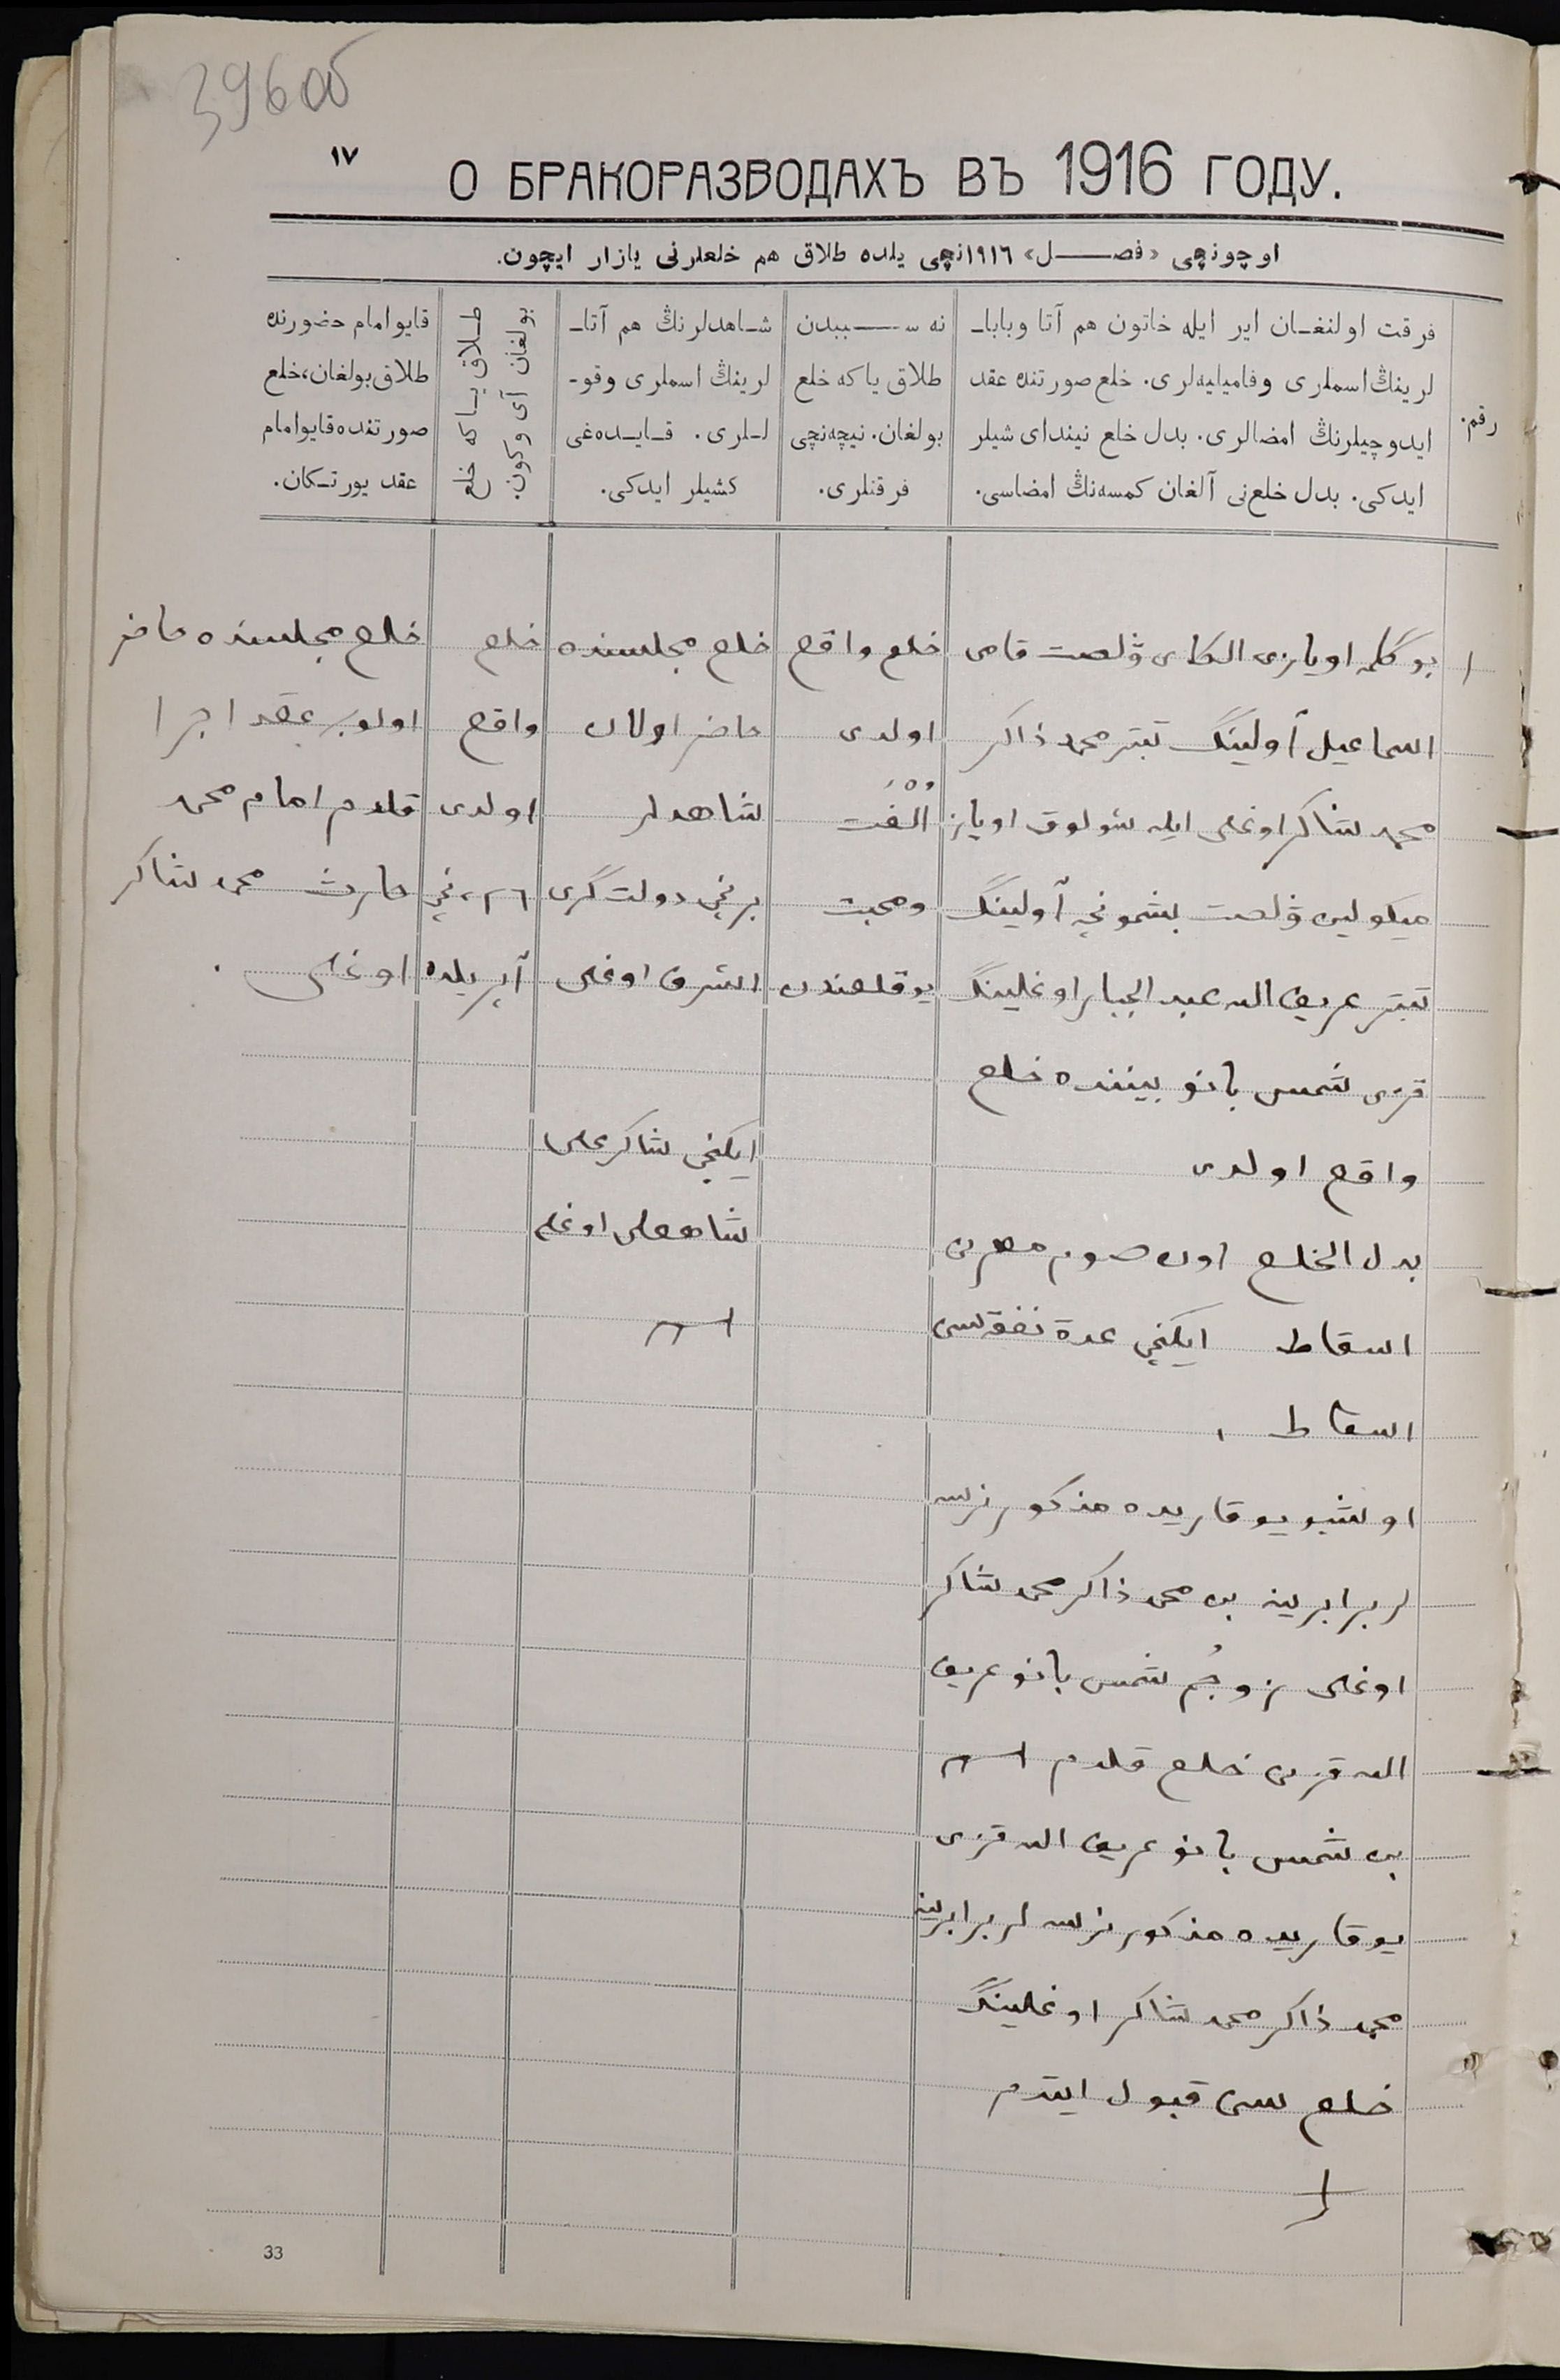 396 об
١٧
О БРАКОРАЗВОДАХЪ ВЪ 1916 ГОДУ.
اوچونچی «فصل» ١٩١٦نچی یلده طلاق هم خلعلرنی یازار ایچون.
رقم.
فرقت اولنغان ایر ایله خاتون هم آتا وبابا‌ـ
لرینڭ اسملری وفامیلیه‌لری. خلع صورتنده عقد
ایدوچیلرنڭ امضالری. بدل خلع نیندای شیلر
ایدكی. بدل خلع‌نی آلغان كمسه‌نڭ امضاسی.
نه سببدن
طلاق یا كه خلع
بولغان. نیچه‌نچی
فرقتلری.
شاهدلرنڭ هم آتا‌ـ
لرینڭ اسملری وقو‌ـ
لـلری. قایده‌غی
كشیلر ایدكی.
طلاق یا كه خلع
بولغان آی و كون.
قایو امام حضورنده
طلاق بولغان، خلع
صورتنده قایو امام
عقد یورتكان.
١
بوكلمه اویازی الكای ۋلصت قامی
اسماعیل آولینڭ تبتر محمد ذاكر
محمد شاكر اوغلی ایله شولوق اویاز
میكولین ۋلصت بشمونچه آولینڭ
تبتر عریف الله عبد الجبار اوغلینڭ
قزی شمس بانو بیننده خلع
واقع اولدی
بدل الخلع اون صوم مهرین
اسقاط ایكنچی عدة نفقه‌سی
اسقاط
اوشبو یوقاریده مذكور نرسه
لر برابرینه بن محمد ذاكر محمد شاكر
اوغلی زوجُم شمس بانو عریف
الله قزین خلع قلدم
بن شمس بانو عریف الله قزی
یوقاریده مذكور نرسه لر برابرینه
محمد ذاكر محمد شاكر اوغلینڭ
خلع سی قبول ایتدم
خلع واقع
اولدی
اُلفَت
ومحبت
یوقلغندن
خلع مجلسنده
حاضر اولان
شاهدلر
برنچی دولت گری
اشرف اوغلی
ایكنچی شاكر علی
شاهعلی اوغلی
خلع
واقع
اولدی
٢٦،نچی
آپریلده
خلع مجلسنده حاضر
اولوب عقد اجرا
قلدم امام محمد
حارث محمد شاكر
اوغلی .
33